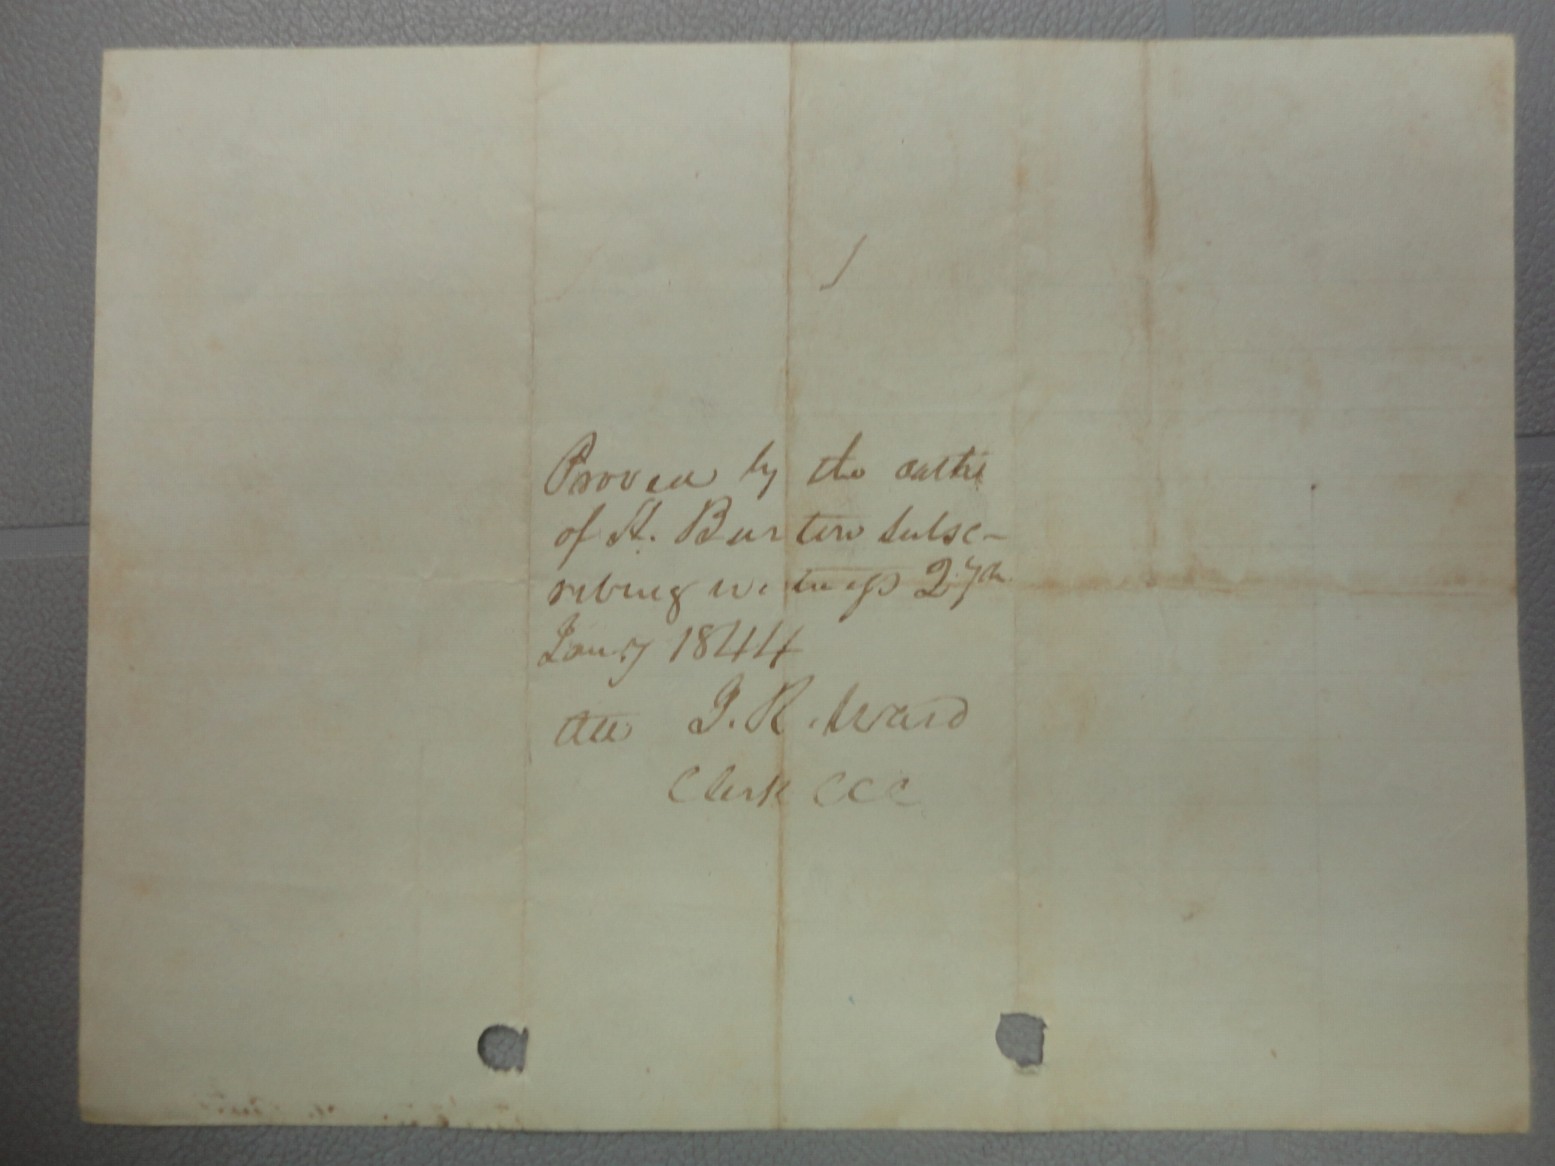 Proven by the oath
of H. Burton subsc-
ribing witness 27th
Jany 1844
Att J. R. Ward
Clerk CCC